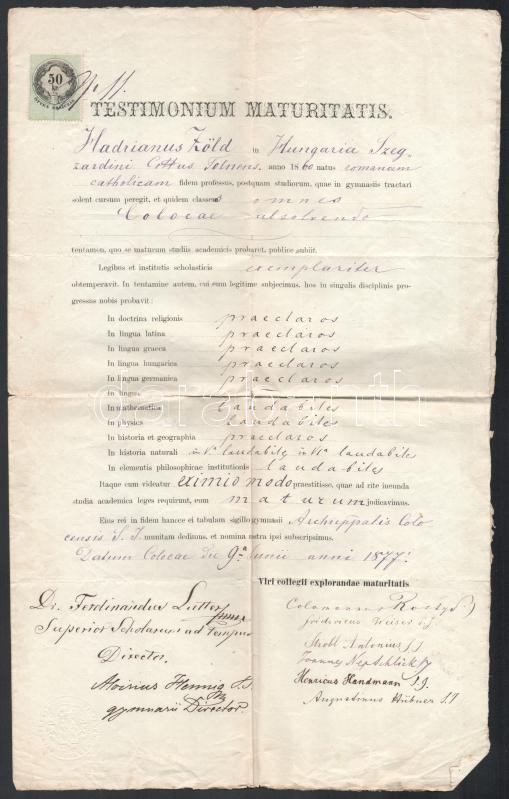 50
kr
No 11.
TESTIMONIUM MATURITATIS.
Hadrianus Zöld in Hungaria Szeg-
zardini Cottus Tolnens. anno 1860 natus romanam
catholicam fidem professus, postquam studiorum, quae in gymnasiis tractari
solent cursum peregit, et quidem classes omnes
Colocae absolvendo
tentamen, quo se maturum studiis academicis probaret, publice subiit.
Legibus et institutis scholasticis exemplariter
obtemperavit. In tentamine autem, cui eum legitime subjecimus, hos in singulis disciplinis pro-
gressus nobis probavit:
In doctrina religionis praeclaros
In lingua latina praeclaros
In lingua graeca praeclaros
In lingua hungarica praeclaros
In lingua germanica praeclaros
In lingua
In mathematica laudabiles
In physica laudabiles
In historia et geographia praeclaros
In historia naturali laudabiles laudabiles
In elementis philosophicae institutionis laudabiles
Itaque cum videatur eximio modo praestitisse, quae ad rite incunda
studia academica leges requirunt, eum maturum judicavimus.
Ejus rei in fidem hancce ei tabulam sigillo gymnasii Archieppalis Colo
censis S. J. munitam dedimus, et nomina nostra ipsi subscripsimus.
Datum Colocae die 9a Junii anni 1877.
Viri collegii explorandae maturitatis
Dr. Ferdinandus Lutter
Superior Scholarum ad tempus
Director.
Aloisius Hennig S.J.
gymnasii Director.
Colomannus Rosty S.J.
Fridericus Weiser S.J.
Strobl Antonius S.J.
Joannes
Henricus Handmann S.J.
Augustinus Hübner S.J.
darabanth